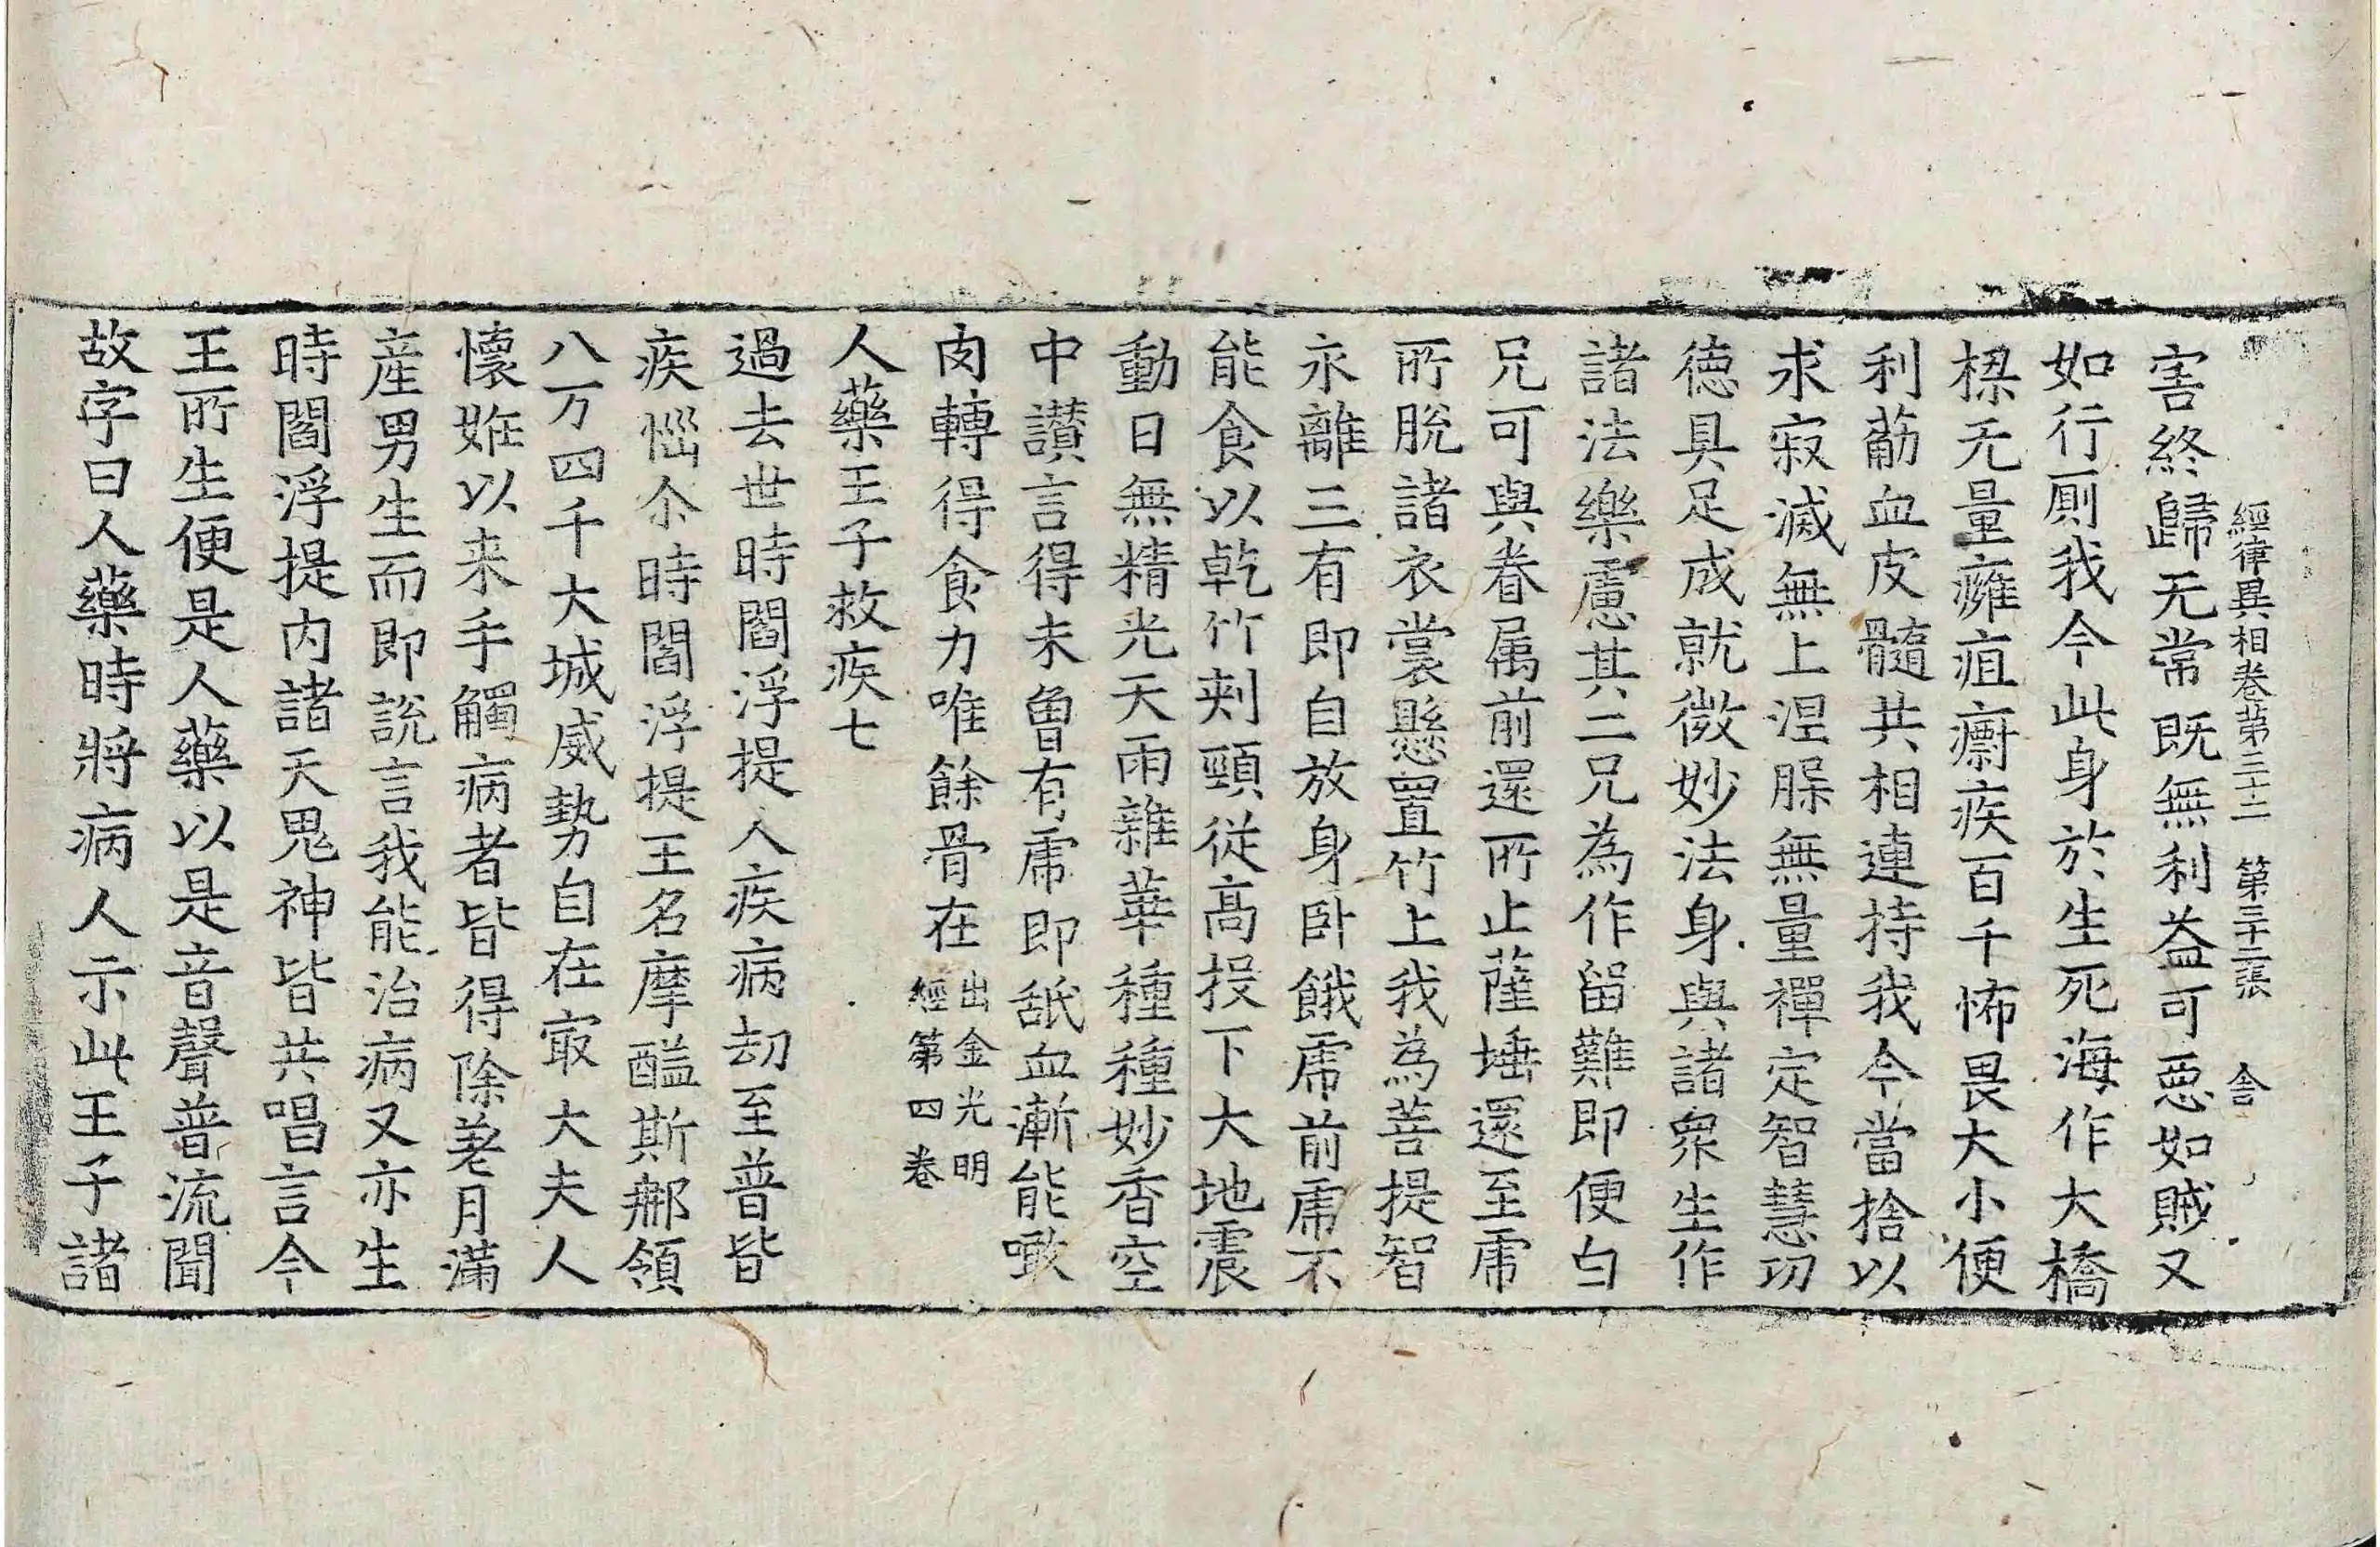 經律異相卷第三十二 第二十二張 舍
害終歸无常既無利益可惡如賊又
如行厠我今此身於生死海作大橋
樑无量癰疽癤疾百千怖畏大小便
利筋血皮髓共相連持我今當捨以
求寂滅無上涅槃無量禪定智慧功
德具足成就微妙法身與諸衆生作
諸法樂慮其二兄為作留難即便白
兄可與眷属前還所止薩埵還至虎
所脫諸衣裳懸置竹上我為菩提智
永離三有即自放身卧餓虎前虎不
能食以乾竹刾頸從高投下大地震
動日無精光天雨雜華種種妙香空
中讃言得未曾有虎即舐血漸能噉
肉轉得食力唯餘骨在出金光明
經第四卷
人藥王子救疾七
過去世時閻浮提人疾病劫至普皆
疾惱尒時閻浮提王名摩醯斯那領
八万四千大城威勢自在㝡大夫人
懷姙以来手觸病者皆得除差月滿
産男生而即說言我能治病又亦生
時閻浮提内諸天鬼神皆共唱言今
王所生便是人藥以是音聲普流聞
故字曰人藥時將病人示此王子諸